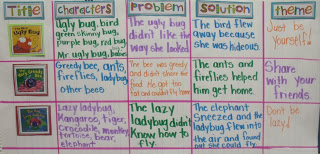 Title Characters Problem Solution theme
Ugly bug, bird
green skinny bug,
purple bug, red bug
Mr. ugly bug, babies
The ugly bug
didn't like the
way she looked
The bird flew
away because
she was hideous
Just be
yourself!
Greedy bee, ants,
fireflies, ladybug
other bees
The bee was greedy
and didn't share the
food. He got too
fat and couldn't fly home
The ants and
fireflies helped
him get home.
Share
with your
friends
Lazy ladybug,
Kangaroo, tiger,
crocodile, monkey
tortoise, bear,
elephant
The lazy
ladybug didn't
know how to
fly.
The elephant
sneezed and the
ladybug flew into
the air and found
out she could fly.
Don't be
lazy!